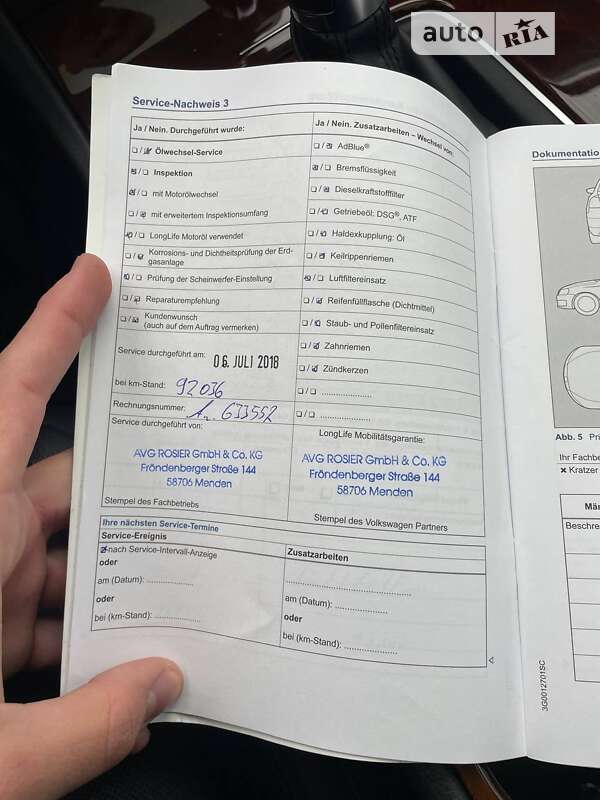 auto RIA
Service-Nachweis 3
Ja / Nein. Durchgeführt wurde:
Ölwechsel-Service
Inspektion
mit Motorölwechsel
mit erweitertem Inspektionsumfang
LongLife Motoröl verwendet
Korrosions- und Dichtheitsprüfung der Erd-
gasanlage
Prüfung der Scheinwerfer-Einstellung
Reparaturempfehlung
Kundenwunsch
(auch auf dem Auftrag vermerken)
Service durchgeführt am: 06. JULI 2018
bei km-Stand: 92036
Rechnungsnummer: 633552
Service durchgeführt von:
AVG ROSIER GmbH & Co. KG
Fröndenberger Straße 144
58706 Menden
Stempel des Fachbetriebs
Ja / Nein. Zusatzarbeiten – Wechsel von:
AdBlue®
Bremsflüssigkeit
Dieselkraftstofffilter
Getriebeöl: DSG®, ATF
Haldexkupplung: Öl
Keilrippenriemen
Luftfiltereinsatz
Reifenfüllflasche (Dichtmittel)
Staub- und Pollenfiltereinsatz
Zahnriemen
Zündkerzen
LongLife Mobilitätsgarantie:
AVG ROSIER GmbH & Co. KG
Fröndenberger Straße 144
58706 Menden
Stempel des Volkswagen Partners
Ihre nächsten Service-Termine
Service-Ereignis
nach Service-Intervall-Anzeige
oder
am (Datum): ..................
oder
bei (km-Stand): ..................
Zusatzarbeiten
am (Datum): ..................
oder
bei (km-Stand): ..................
3G0012701SC
Dokumentatio
Abb. 5
Ihr Fachbe
× Kratzer
Beschre